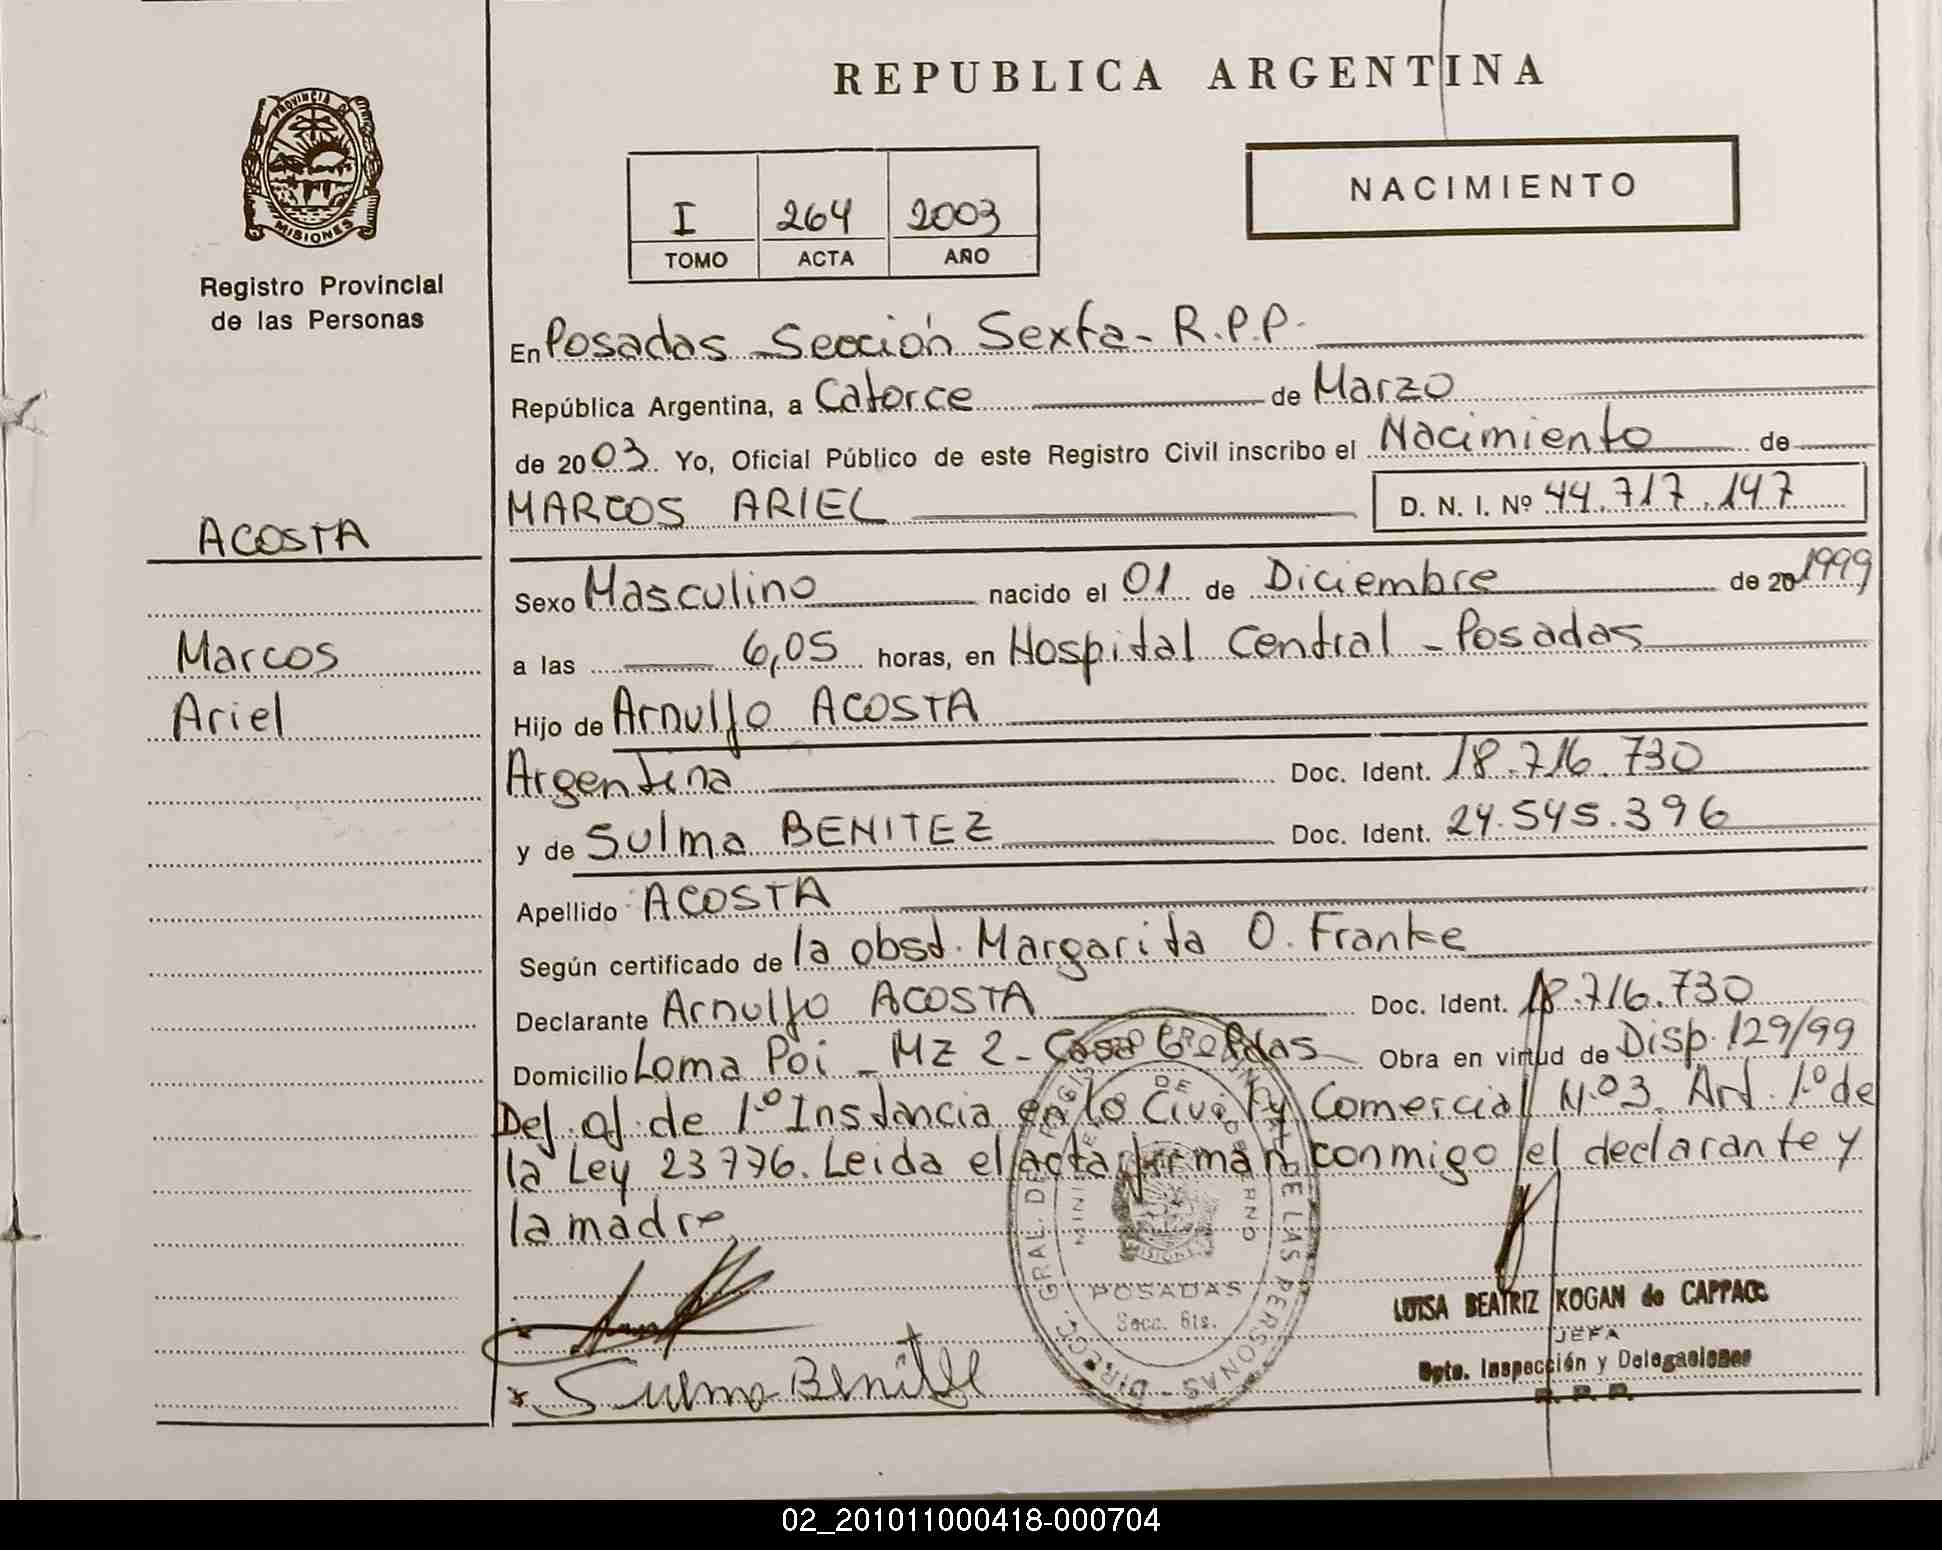 REPUBLICA ARGENTINA
PROVINCIA DE
MISIONES
Registro Provincial
de las Personas
NACIMIENTO
I 264 2003
TOMO ACTA AÑO
En Posadas Sección Sexta - R.P.P.
República Argentina, a Catorce de Marzo
de 2003. Yo, Oficial Público de este Registro Civil inscribo el Nacimiento de
MARCOS ARIEL D. N. I. Nº 44.717.147
ACOSTA
Marcos
Ariel
Sexo Masculino nacido el 01 de Diciembre de 20 1999
a las 6,05 horas, en Hospital Central - Posadas
Hijo de Arnulfo ACOSTA
Argentina Doc. Ident. 18.716.730
y de Sulma BENITEZ Doc. Ident. 24.545.396
Apellido ACOSTA
Según certificado de la obst. Margarita O. Franke
Declarante Arnulfo ACOSTA Doc. Ident. 18.716.730
Domicilio Loma Poi - Mz 2 - Casa 6 Pdas Obra en virtud de Disp. 129/99
Del of. de 1.º Instancia en lo Civil y Comercial N.º 3. Art. 1.º de
la Ley 23776. Leida el acta firman conmigo el declarante y
la madre.
DIRECC. GRAL. DEL REGISTRO PROVINCIAL DE LAS PERSONAS
MINISTERIO DE GOBIERNO
MISIONES
POSADAS
Secc. 6ta.
Sulma Benitez
LUISA BEATRIZ KOGAN de CAPPACC
JEFA
Dpto. Inspección y Delegaciones
R. P. P.
02_201011000418-000704